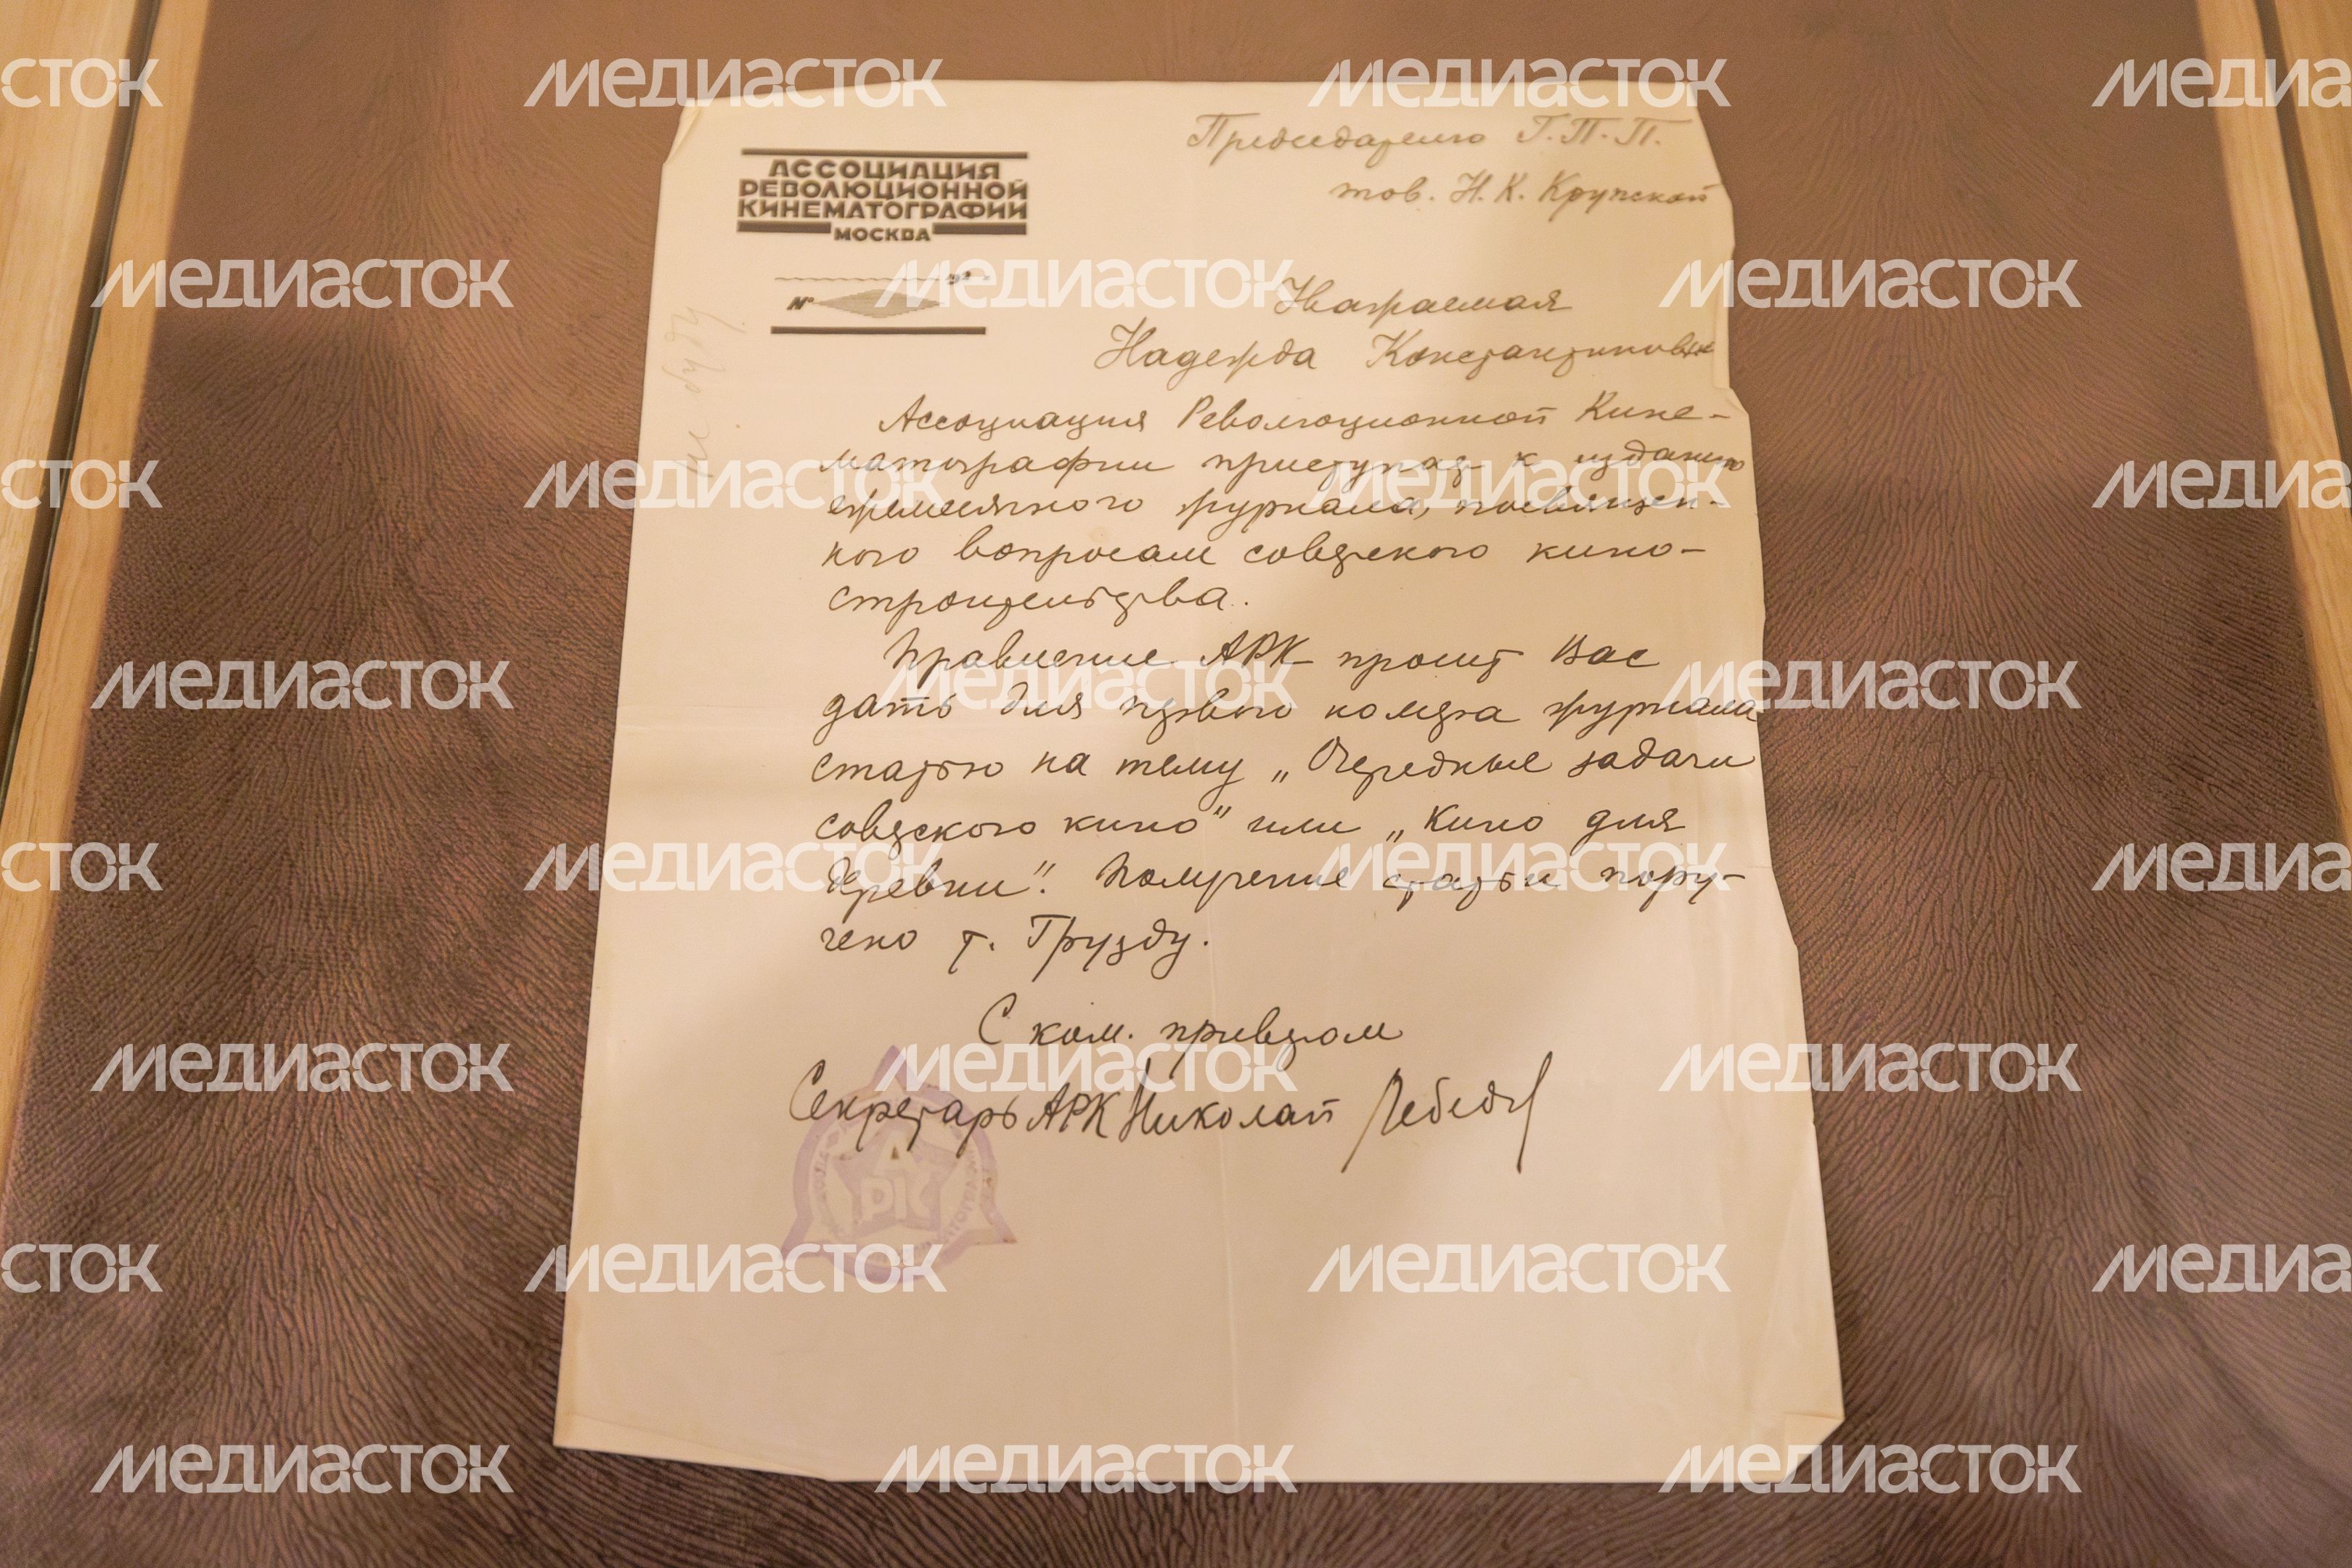 АССОЦИАЦИЯ
РЕВОЛЮЦИОННОЙ
КИНЕМАТОГРАФИИ
МОСКВА
192
№
Председателю Г.П.П.
тов. Н. К. Крупской
Уважаемая
Надежда Константиновна
Ассоциация Революционной Кине-
матографии приступает к изданию
ежемесячного журнала, посвящен-
ного вопросам советского кино-
строительства.
Правление АРК просит Вас
дать для первого номера журнала
статью на тему „Очередные задачи
советского кино" или „Кино для
деревни". Получение статьи пору-
чено т. Грузду.
С ком. приветом
Секретарь АРК Николай Лебедев
АРК
МЕДИАСТОК